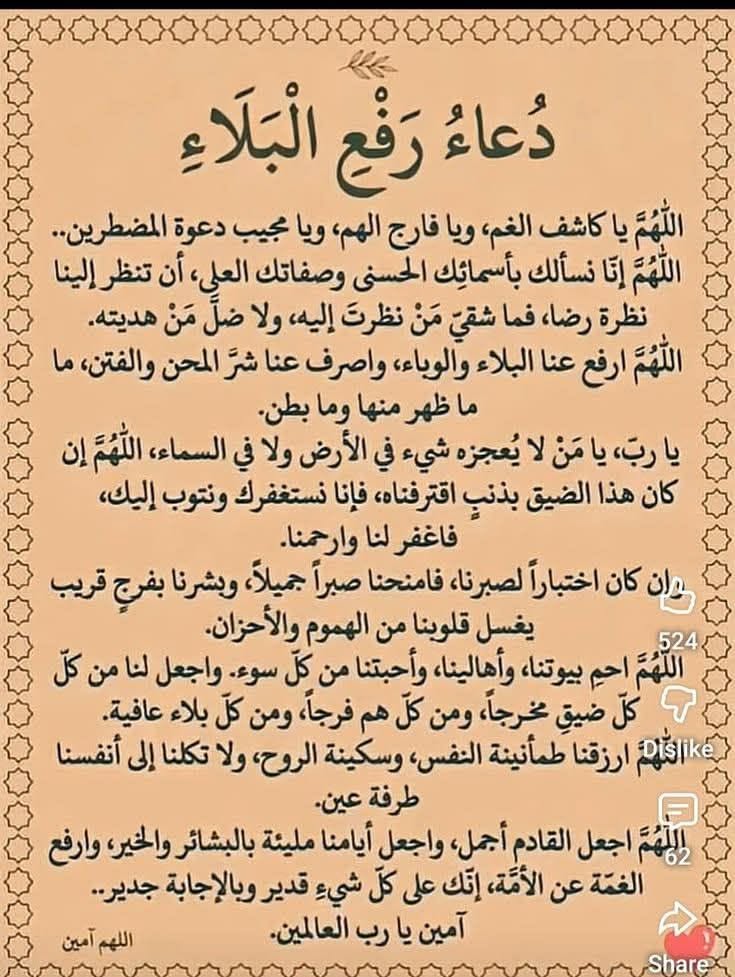 دُعاءُ رَفْعِ الْبَلَاءِ
اللَّهُمَّ يا كاشف الغم، ويا فارج الهم، ويا مجيب دعوة المضطرين..
اللَّهُمَّ إنّا نسألك بأسمائك الحسنى وصفاتك العلى، أن تنظر إلينا
نظرة رضا، فما شقيَ مَنْ نظرتَ إليه، ولا ضلَّ مَنْ هديته.
اللَّهُمَّ ارفع عنا البلاء والوباء، واصرف عنا شرَّ المحن والفتن، ما
ما ظهر منها وما بطن.
يا ربّ، يا مَنْ لا يُعجزه شيء في الأرض ولا في السماء، اللَّهُمَّ إن
كان هذا الضيق بذنبٍ اقترفناه، فإنا نستغفرك ونتوب إليك،
فاغفر لنا وارحمنا.
وإن كان اختباراً لصبرنا، فامنحنا صبراً جميلاً، وبشرنا بفرجٍ قريب
يغسل قلوبنا من الهموم والأحزان.
اللَّهُمَّ احمِ بيوتنا، وأهالينا، وأحبتنا من كلّ سوء. واجعل لنا من كلّ
كلّ ضيقٍ مخرجاً، ومن كلّ هم فرجاً، ومن كلّ بلاء عافية.
اللَّهُمَّ ارزقنا طمأنينة النفس، وسكينة الروح، ولا تكلنا إلى أنفسنا
طرفة عين.
اللَّهُمَّ اجعل القادم أجمل، واجعل أيامنا مليئة بالبشائر والخير، وارفع
الغمّة عن الأمَّة، إنّك على كلّ شيءٍ قدير وبالإجابة جدير..
آمين يا رب العالمين.
اللهم آمين
524
Dislike
62
Share